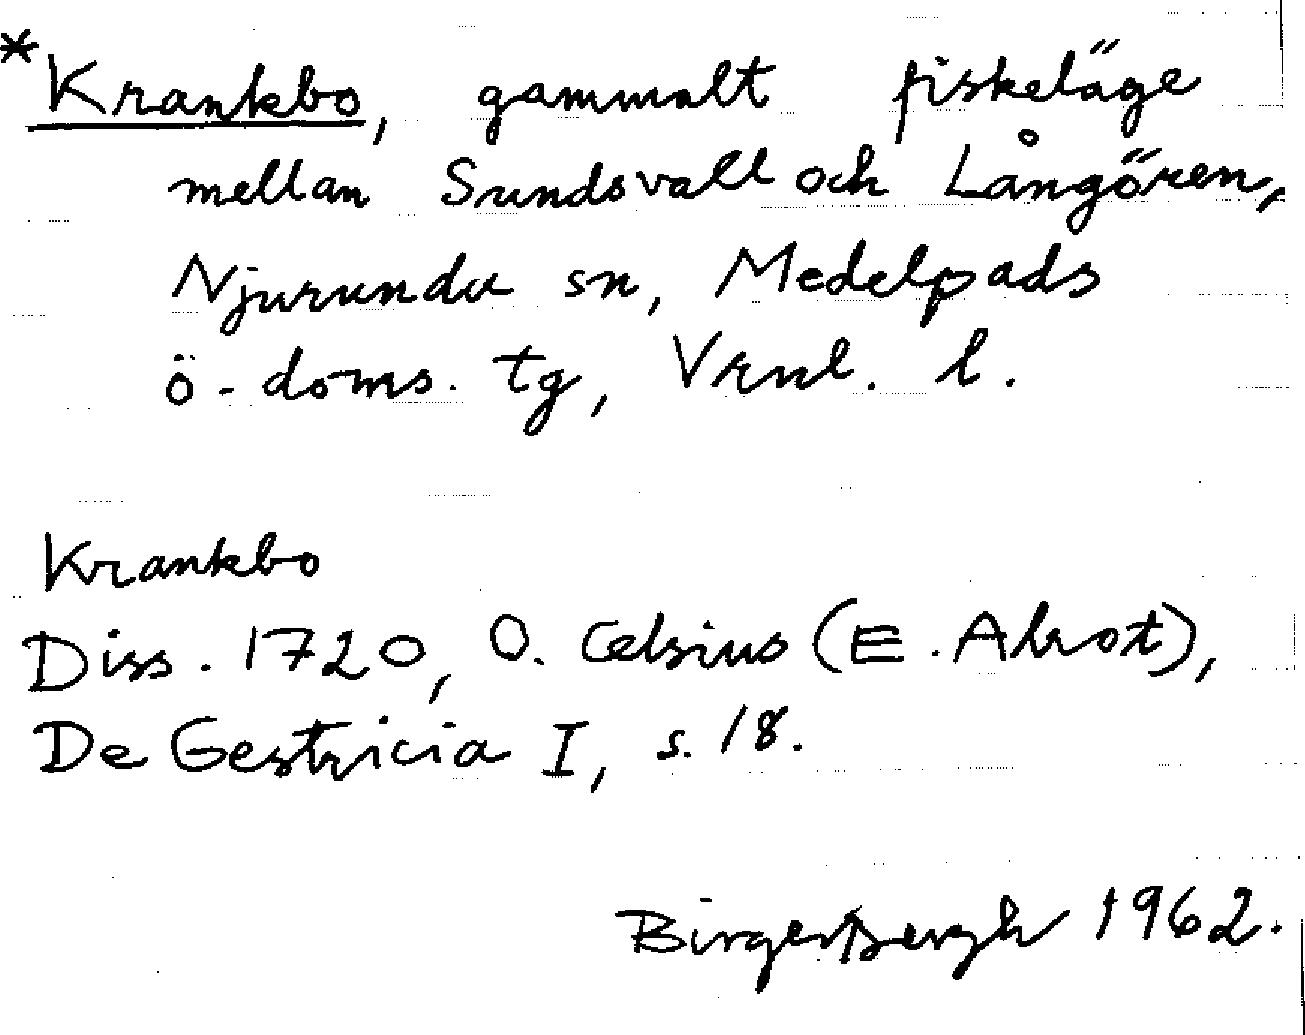 *Krankbo, gammalt fiskeläge
mellan Sundsvall och Långören,
Njurunda sn, Medelpads
ö. doms. tg, Vrnl. l.
Krankbo
Diss. 1720, O. Celsius (E. Abrot),
De Gestricia I, s. 18.
Birger Bergh 1962.